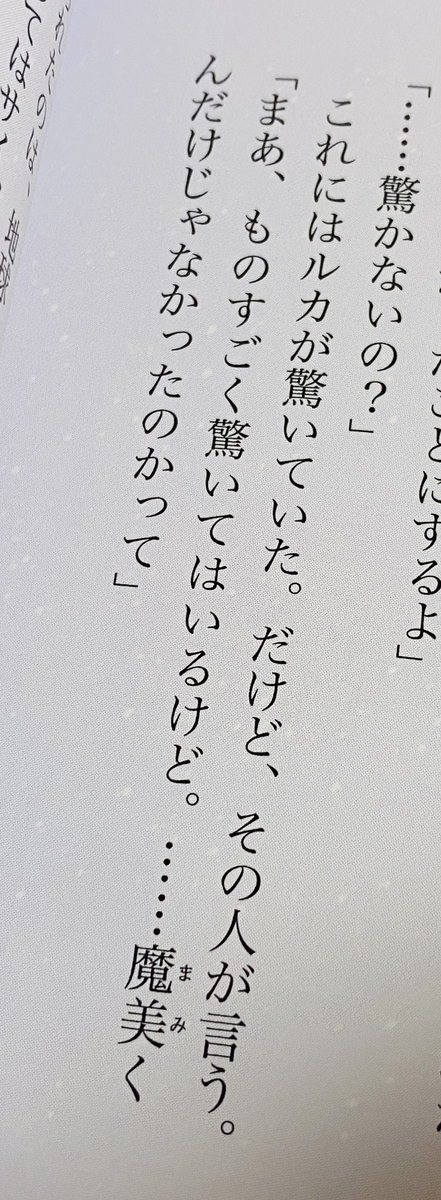 にするよ」
「……驚かないの？」
これにはルカが驚いていた。だけど、その人が言う。
「まあ、ものすごく驚いてはいるけど。……魔美く
んだけじゃなかったのかって」